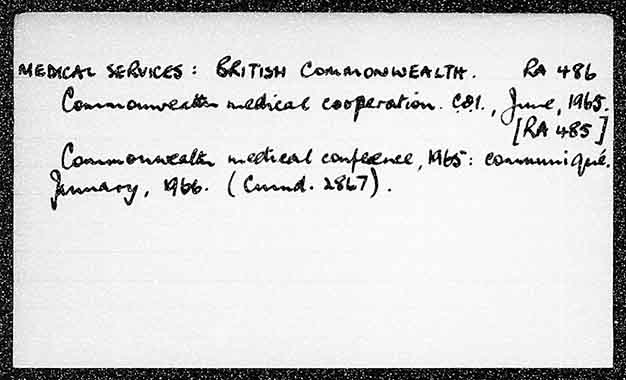 MEDICAL SERVICES: BRITISH COMMONWEALTH. RA 486
Commonwealth medical cooperation. C.O.I., June, 1965.
[RA 485]
Commonwealth medical conference, 1965: communiqué.
January, 1966. (Cmnd. 2867).